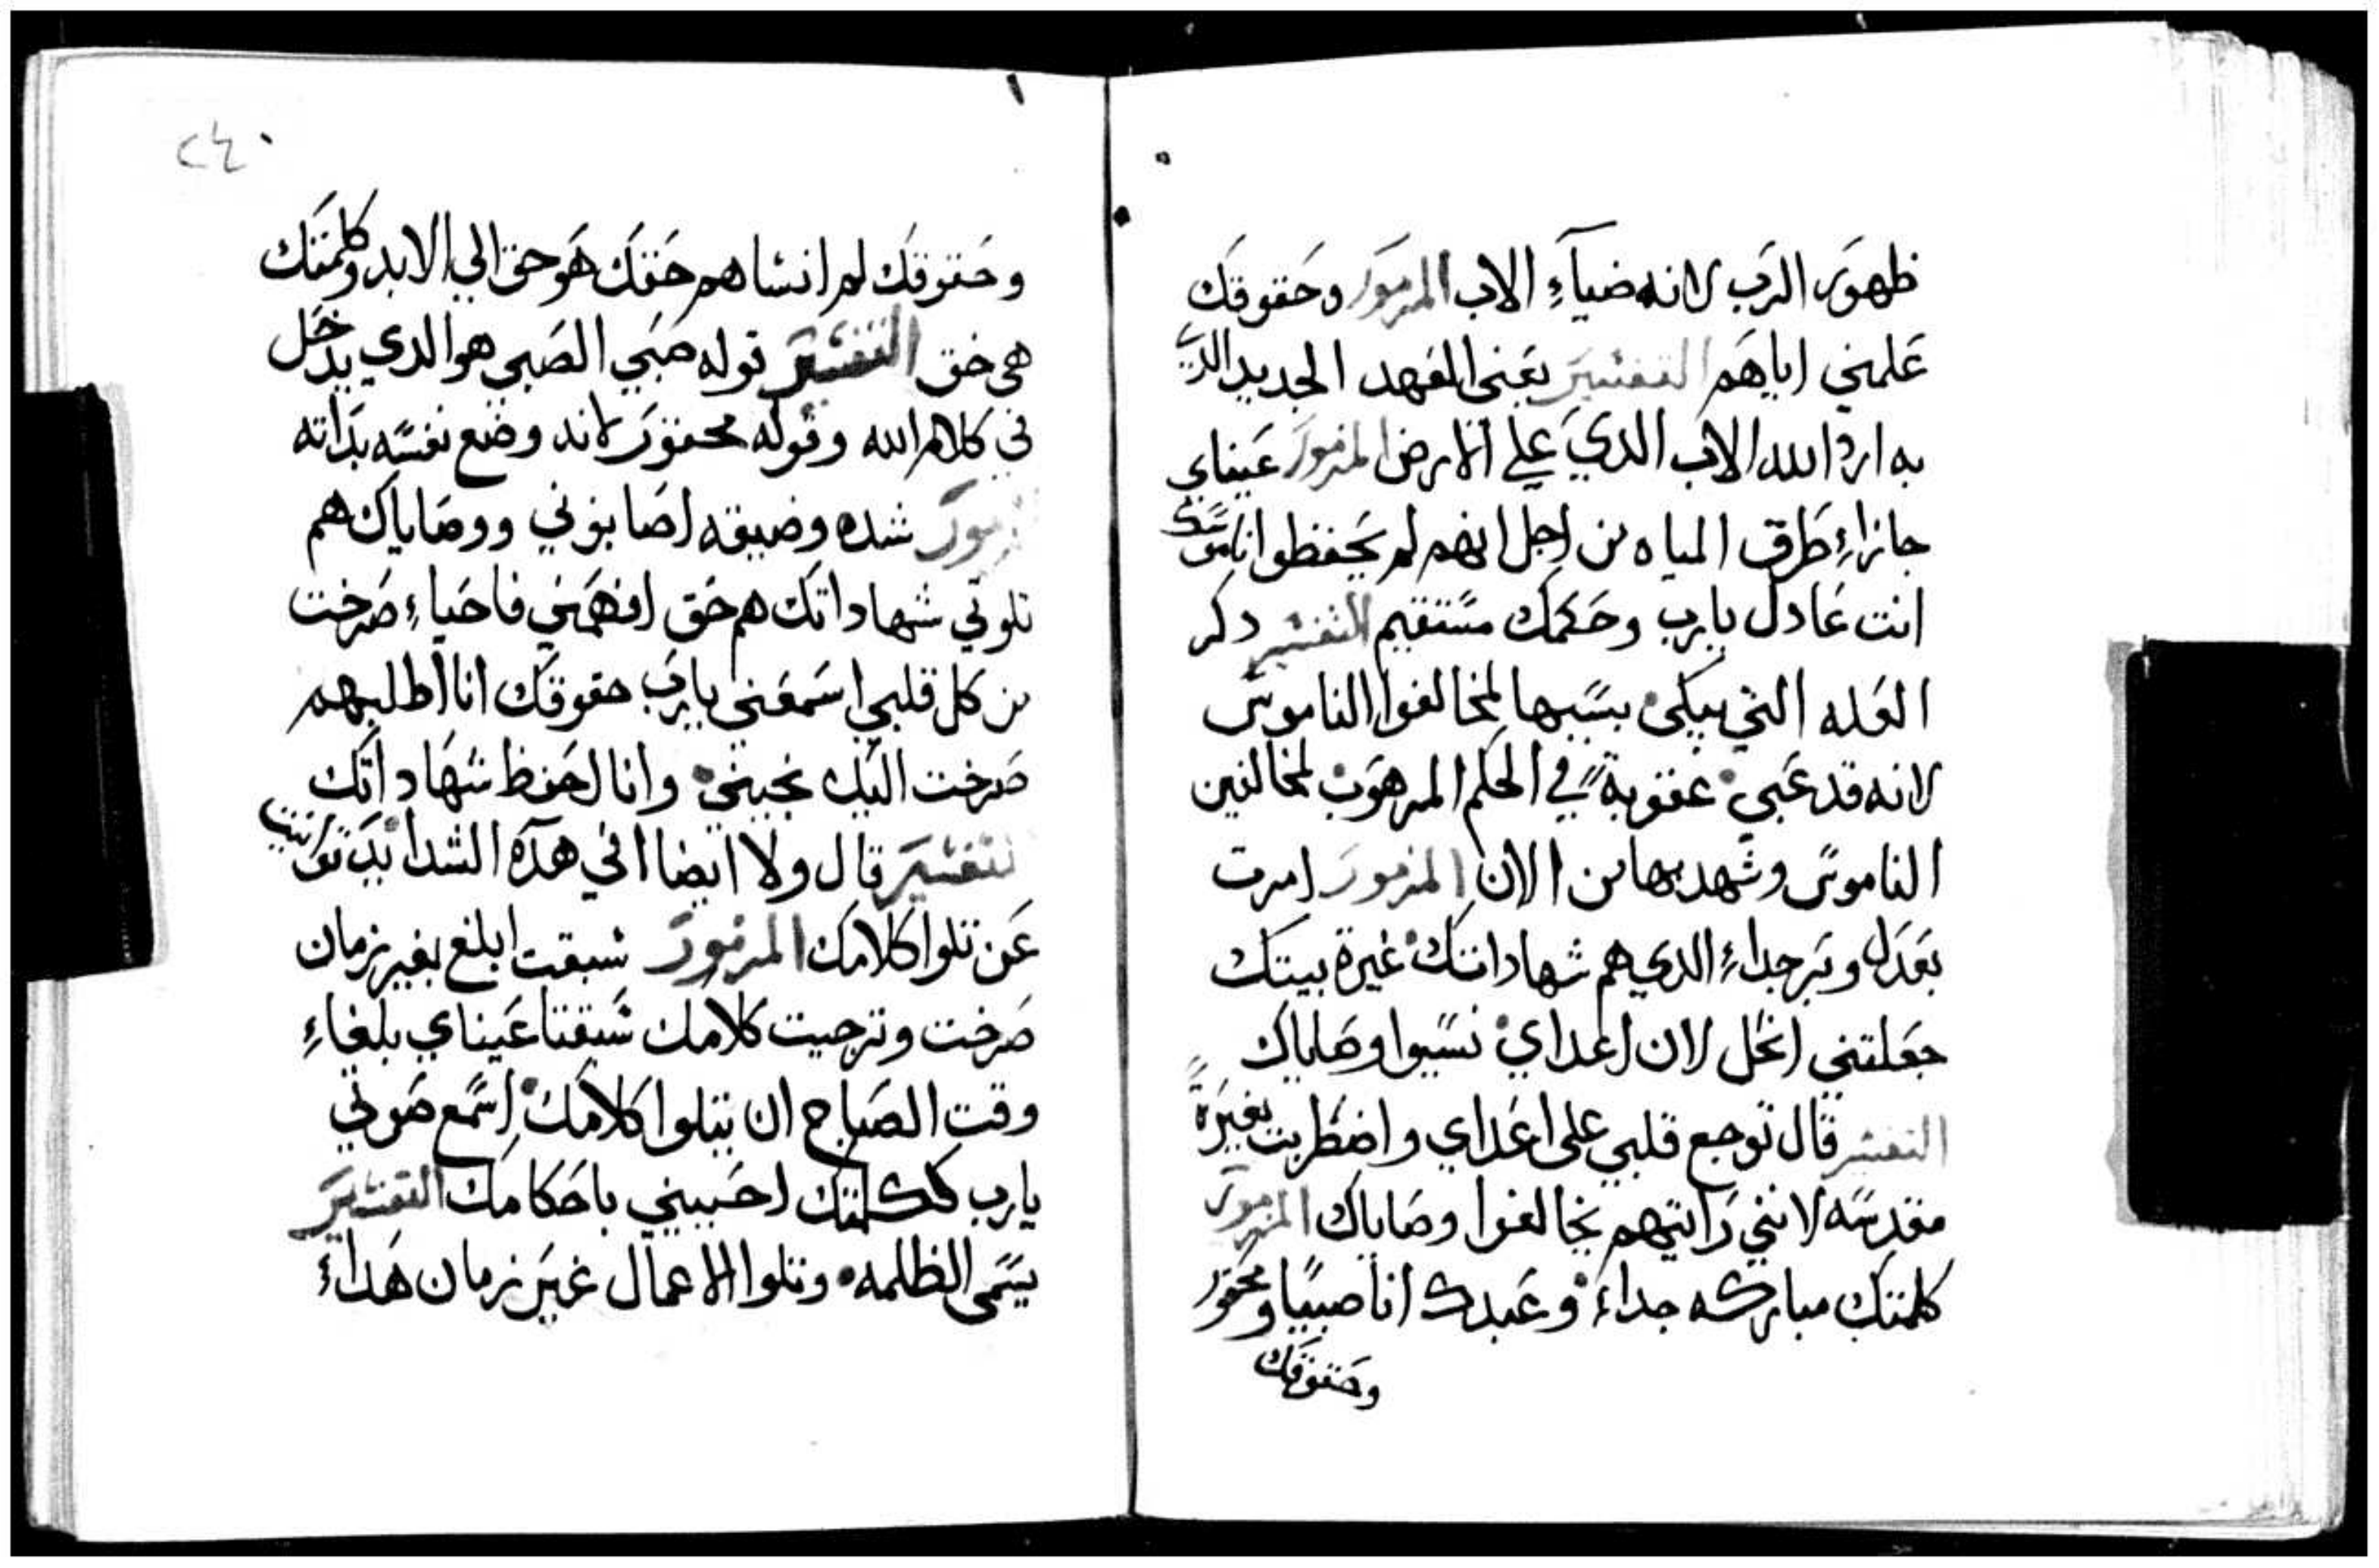 ظهور الرب لانه ضياء الاب المزمور وحقوقك
علمني اياهم التفسير يعني العهد الجديد الذي
به اروا الله الاب الدي علي الارض المزمور عيناي
جازاء طرق المياه من اجل انهم لم يحفظوا ناموسك
انت عادل يارب وحكمك مستقيم التفسير دكر
العله التي يبكي بسببها لمخالفوا الناموس
لانه قد عبي عقوبة في الحكم المرهوب لمخالفين
الناموس وشهد بها من الان المزمور امرت
بعدل وبر جداء الدي هم شهاداتك غيرة بيتك
جعلتني انحل لان اعداي نسيوا وصاياك
التفسير قال توجع قلبي علي اعداي واضطربت بغيرة
مقدسه لانني رايتهم يخالفوا وصاياك المزمور
كلمتك مباركه جداء وعبدك انا صبيا ومحقور
وحقوقك
٢٤٠
وحقوقك لم انساهم حقك هو حق الي الابد وكلمتك
هي حق التفسير قوله صبي الصبي هو الدي يدخل
في كلام الله وقوله محقور لانه وضع نفسه بداته
المزمور شده وضيقه اصابوني ووصاياك هم
تلوتي شهاداتك هم حق افهمني فاحياء صرخت
من كل قلبي اسمعني يارب حقوقك انا اطلبهم
صرخت اليك نجيني وانا احفظ شهاداتك
التفسير قال ولا ايضا في هده الشدايد توانيت
عن تلوا كلامك المزمور سبقت ابلغ بغير زمان
صرخت وترجيت كلامك سبقتا عيناي بلغاء
وقت الصباح ان يتلوا كلامك اسمع صوتي
يارب كلمتك احييني باحكامك التفسير
يسمي الظلمه وتلوا الاعمال غير زمان هداء